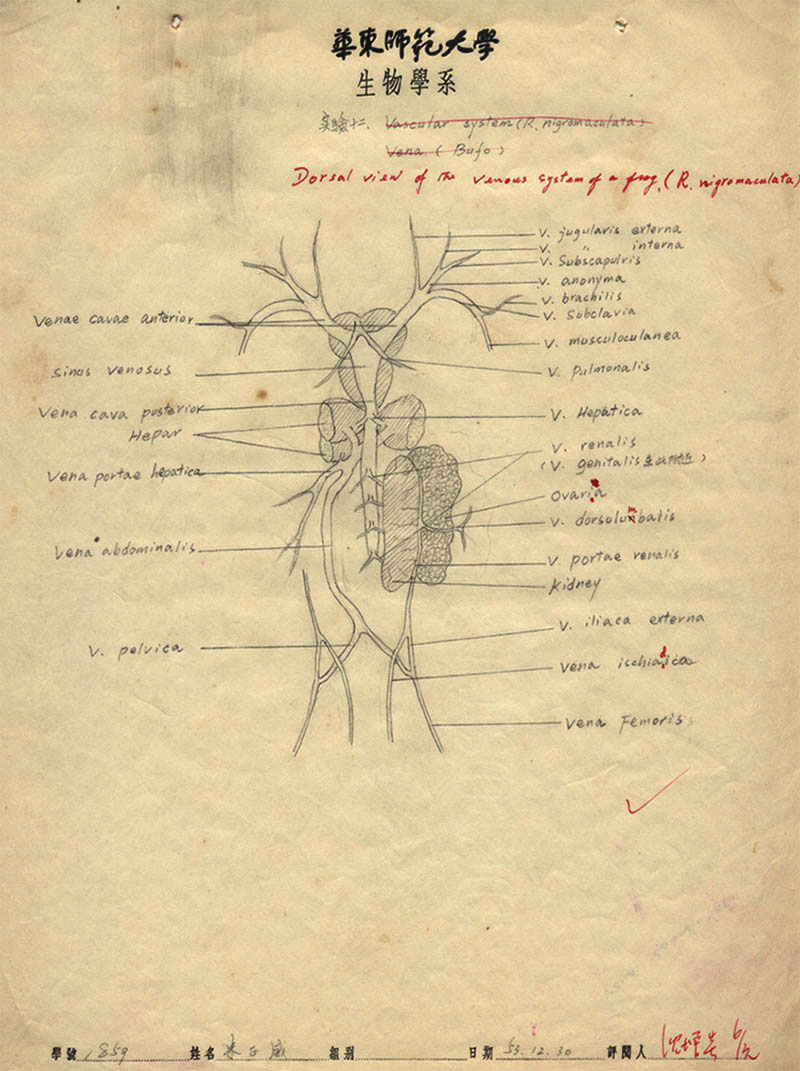 華東師範大學
生物學系
实验十二、 Vascular system (R. nigromaculata)
Vena ( Bufo )
Dorsal view of the venous system of a frog, (R. nigromaculata)
V. jugularis externa
V. 〃 interna
V. Subscapulris
V. anonyma
V. brachilis
V. Subclavia
V. musculoculanea
V. pulmonalis
V. Hepatica
V. renalis
(V. genitalis
Ovaria
V. dorsolumbalis
V. portae renalis
Kidney
V. iliaca externa
Vena ischiadica
Vena Femoris
Venae cavae anterior
Sinus venosus
Vena cava posterior
Hepar
Vena portae hepatica
Vena abdominalis
V. pelvica
學號 1859 姓名 朱正威 組別 日期 53.12.30 評閱人